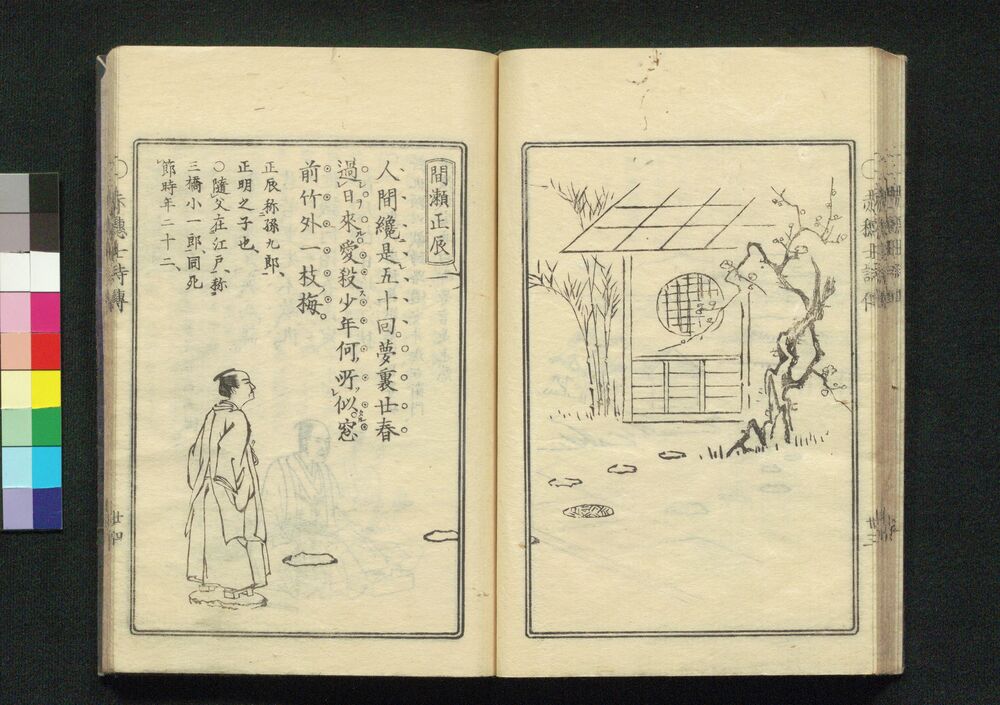 間瀬正辰
人間纔是五十回夢裏廿春
過日來愛殺少年何所似窓
前竹外一枝梅
正辰称孫九郎、
正明之子也、
○隨父在江戸、称
三橋小一郎同死
節時年二十二、
赤穗士詩傳
廿四
廿三